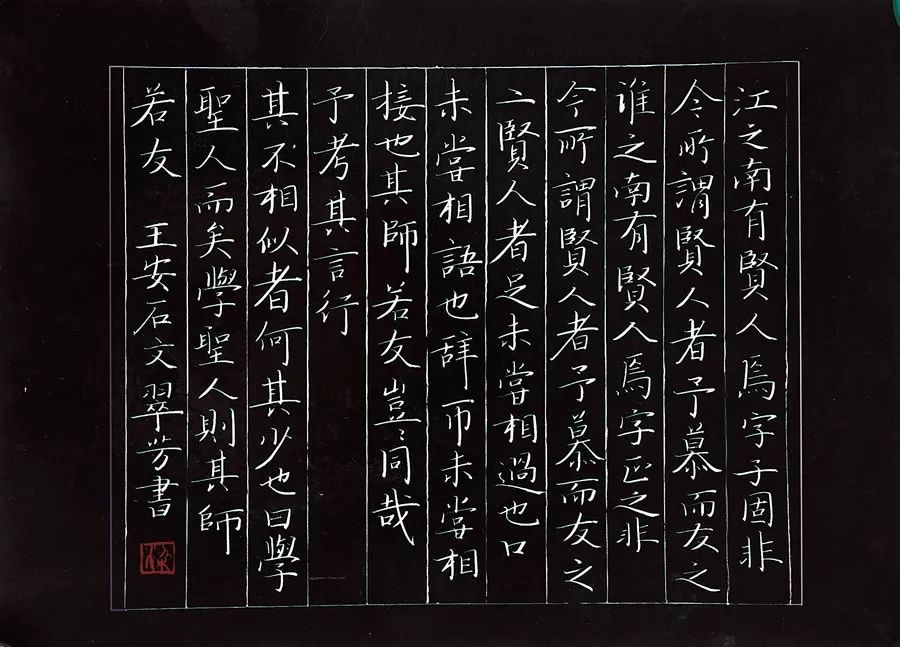 江之南有賢人焉字子固非
今所謂賢人者予慕而友之
淮之南有賢人焉字正之非
今所謂賢人者予慕而友之
二賢人者足未嘗相過也口
未嘗相語也辞币未嘗相
接也其師若友豈〻同哉
予考其言行
其不相似者何其少也曰學
聖人而矣學聖人則其師
若友 王安石文翠芳書